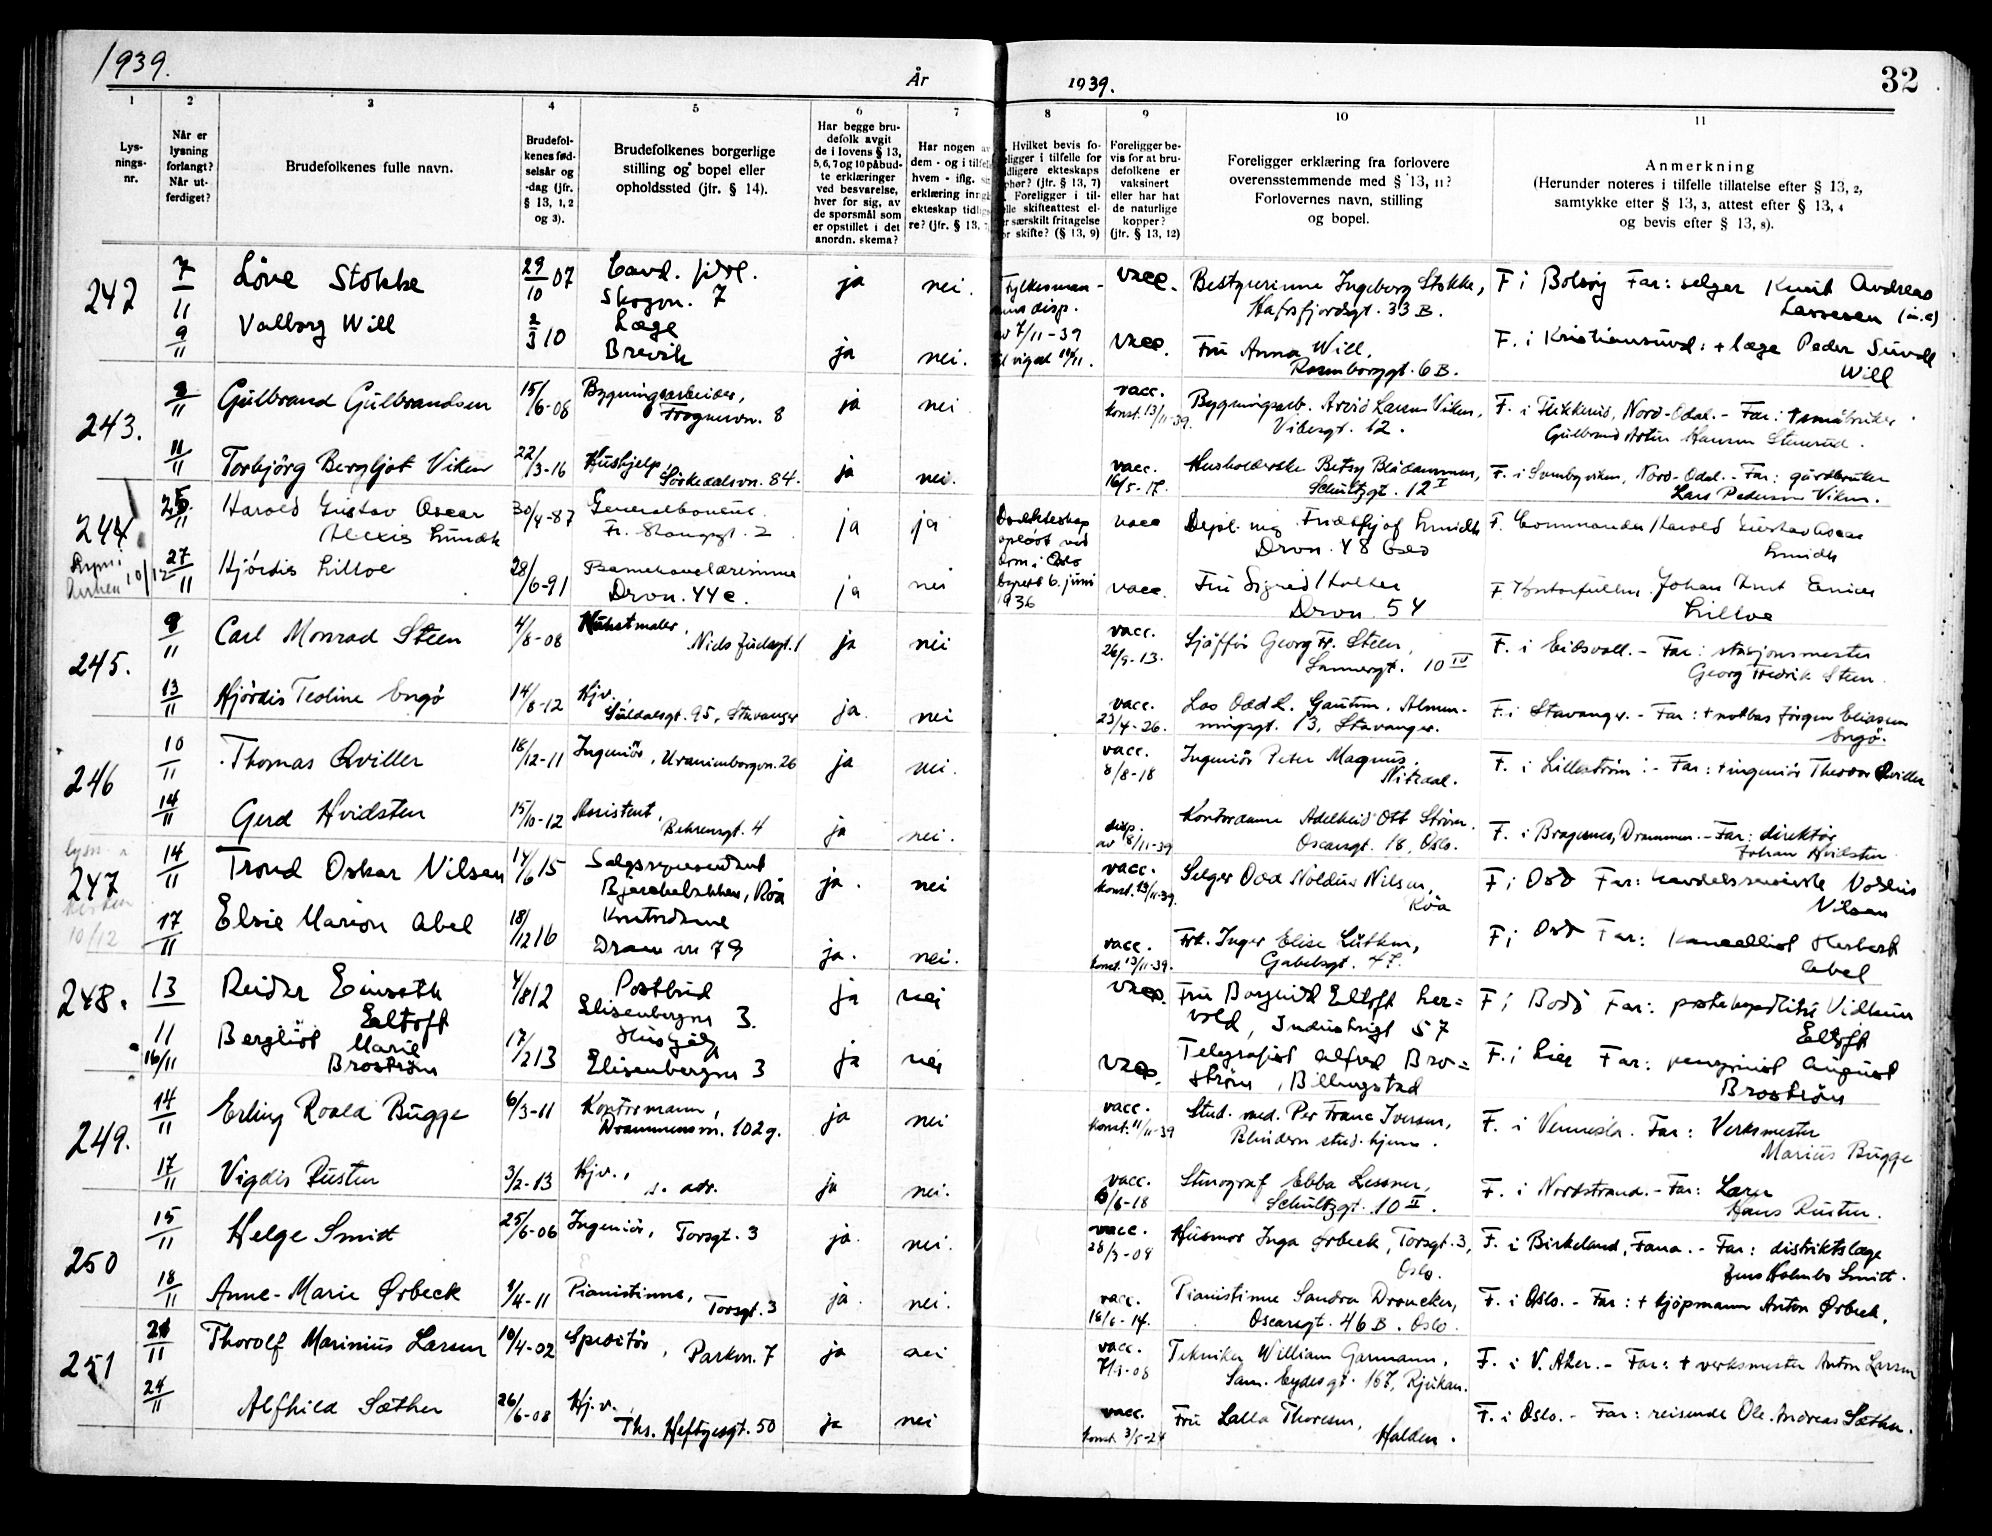 1939.
År
1939.
32
1
2
3
4
5
6
7
8
9
10
11
Lys-
nings-
nr.
Når er
lysning
forlangt?
Når ut-
ferdiget?
Brudefolkenes fulle navn.
Brudefol-
kenes fød-
selsår og
-dag (jfr.
§ 13, 1, 2
og 3).
Brudefolkenes borgerlige
stilling og bopel eller
opholdssted (jfr. § 14).
Har begge bru-
defolk avgit
de i lovens § 13,
5, 6, 7 og 10 påbud-
te erklæringer
ved besvarelse,
hver for sig, av
de spørsmål som
er opstillet i det
anordn. skema?
Har nogen av
dem - og i tilfelle
hvem - iflg. sin
erklæring inngått
ekteskap tidlige-
re? (jfr. § 13, 7)
Hvilket bevis fo-
religger i tilfelle for
tidligere ekteskaps
ophør? (jfr. § 13, 7)
Foreligger i til-
felle skifteattest el-
ler særskilt fritagelse
for skifte? (§ 13, 9)
Foreligger be-
vis for at bru-
defolkene er
vaksinert
eller har hat
de naturlige
kopper?
(jfr. § 13, 12)
Foreligger erklæring fra forlovere
overensstemmende med § 13, 11?
Forlovernes navn, stilling
og bopel.
Anmerkning
(Herunder noteres i tilfelle tillatelse efter § 13, 2,
samtykke efter § 13, 3, attest efter § 13, 4
og bevis efter § 13, 8).
242
7/11
Stokke
29/10 07
Cand.
Skogvn. 7
ja
nei.
Fylkesman-
disp.
av 7/11-39
vacc.
Bestyrerinne Ingeborg Stokke,
Hafrsfjordsgt. 33 B.
F i Bolsøy Far: selger Knut Andreas
Lassesen
9/11
Valborg Will
2/3 10
Læge
Brevik
ja
nei.
vacc.
Fru Anna Will,
Rosenborggt. 6 B.
F. i Kristiansund: + læge Peder Sundt
Will
243.
9/11
Gulbrand Gulbrandsen
15/6-06
Bygningsarbeider,
Frognervn. 8
ja
nei
vacc.
konst. 13/11-39.
Bygningsarb. Arvid Larsen Viken,
Vibesgt. 12.
F. i Nord-Odal. - Far: + småbruker
Gulbrand Hansen
11/11
Torbjörg Bergljot Viken
22/3-16
Hushjelp,
Sörkedalsvn. 84.
ja
nei.
vacc.
16/5-17.
Husholderske Betsy
Schultzgt. 12 I
F. i Nord-Odal. - Far: gårdbruker
Lars Pedersen Viken.
244
25/11
Harald Gustav Oscar
Alexis
30/4-87
Generalkonsul
2
ja
ja
opløst ved
dom i Oslo
byrett 6. juni
1936
vacc
Dipl. ing. Fridtjof
Drvn. 48 Oslo
F. Harald Gustav Oscar
10/12
27/11
Hjördis Lilloe
28/6-91
Drvn. 44 c.
ja
nei
vacc.
Fru Sigrid
Drvn. 54
F Johan
Lilloe
245.
8/11
Carl Monrad Steen
4/8-08
Kunstmaler,
Niels Juelsgt. 1
ja
nei
vacc.
26/9-13.
Sjåffør Georg Fr. Steen,
Sannergt. 10 IV
F. i Eidsvoll. - Far: stasjonsmester
Georg Fredrik Steen.
13/11
Hjördis Teoline Engö
14/8-12
Hjv.
Suldalsgt. 95, Stavanger
ja.
nei
vacc.
23/4-26.
Los Odd L. Gautun, Almen-
ningsgt. 13, Stavanger.
F. i Stavanger. - Far: + Jörgen Eliassen
Engö.
246
10/11
Thomas Qviller
18/12-11
Ingeniör, Uranienborgvn. 26
ja
nei.
vacc.
8/8-18
Ingeniör Peter Magnus,
Nittedal.
F. i Lilleström. - Far: + ingeniör Theodor Qviller
14/11
Gerd Hvidsten
15/10-12
Assistent,
Behrensgt. 4
ja
nei.
disp.
av 8/11-39
Kontordame Adelheid Ström.
Oscarsgt. 18, Oslo.
F. i Bragernes, Drammen. - Far: direktör
Johan Hvidsten
247
10/12
14/11
Trond Oskar Nilsen
14/6 15
Salgsrepresentant
Røa
ja.
nei
vacc.
konst. 13/11-39.
Selger Odd Nilsen,
Röa
F i Oslo Far:
Nilsen
17/11
Elsie Marion Abel
18/12 16
Kontordame
79
ja.
nei.
vacc.
konst. 13/11-39.
Frk. Inger Elise Lütken,
Gabelsgt. 47.
F i Oslo Far: Kancellist Herbert
Abel
248.
13/11
Reidar Einseth
Eltoft
4/8 12
Postbud
Elisenbergvn 3.
ja
nei
vacc.
Fru Borghild Eltoft Her=
vold, Industrigt 57
F i Bodö Far: Vidkun
Eltoft
16/11
Bergliot Marie
Broström
17/2 13
Hushjelp
Elisenbergvn 3
ja
nei
vacc.
Telegrafist Alfred Bro=
ström, Billingstad
F. i Lier Far: pensjonist August
Broström
249.
14/11
Erling Roald Bugge
6/3-11
Kontormann,
Drammensvn. 102 g.
ja
nei
vacc.
konst. 11/11-39
Stud. med. Per Franc Iversen,
Blindern stud. hjem.
F. i Vennesla. Far: Verksmester
Marius Bugge
17/11
Vigdis Rusten
3/2-13
Hjv.,
s. adr.
ja
nei.
vacc.
6/6-18
Stenograf Ebba Lessner,
Schultzgt. 10 II.
F. i Nordstrand. - Far:
Hans Rusten.
250
15/11
Helge Smitt
25/6-06
Ingeniör, Torsgt. 3
ja.
nei.
vacc.
28/3-08
Husmor Inga Ørbeck, Torsgt. 3,
Oslo.
F. i Birkeland, Fana. - Far: distriktslæge
Jens Holmbo Smitt.
18/11
Anne-Marie Ørbeck
1/4-11
Pianistinne,
Torsgt. 3
ja.
nei.
vacc.
16/6-14.
Pianistinne Sandra Droucker,
Oscarsgt. 46 B. Oslo.
F. i Oslo. - Far: + kjöpmann Anton Ørbeck.
251
21/11
Thorolf Marinius Larsen
10/4-02
Speditör, Parkvn. 7
ja
nei
vacc.
7/3-08
Tekniker William Garmann,
Sam. Eydesgt. 167, Rjukan.
F. i V. Aker. - Far: + verksmester Anton Larsen
24/11
Alfhild Sæther
26/6-08
Hj.v.,
Ths. Heftyesgt. 50
ja
nei
vacc.
konst. 3/5-24
Fru Lalla Thoresen,
Halden.
F. i Oslo. - Far: reisende Ole Andreas Sæther.